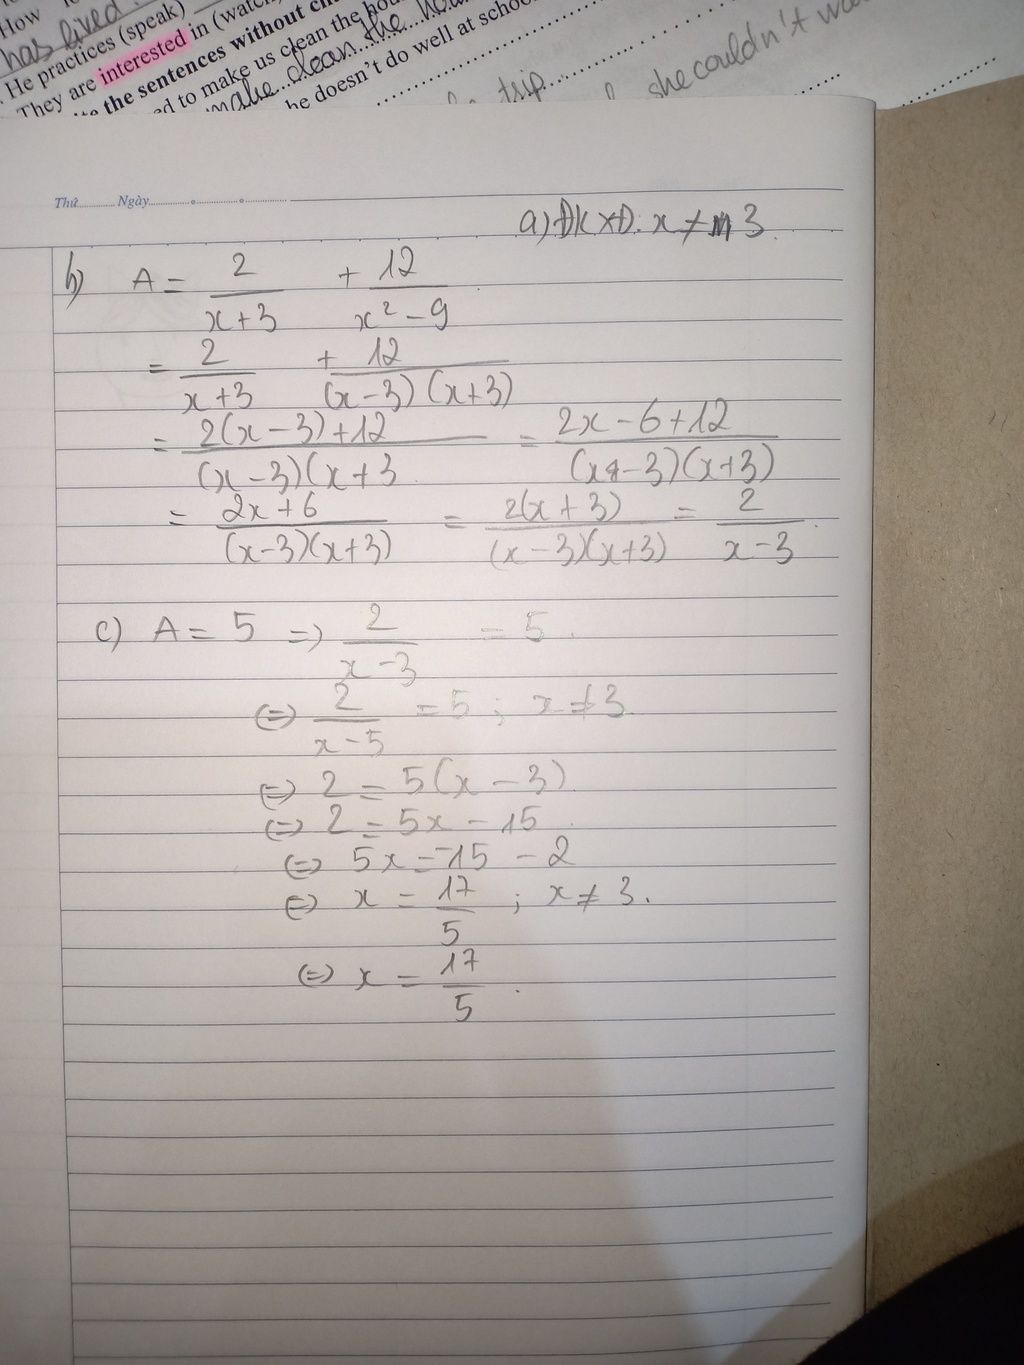 How
has lived
He practices (speak)
They are interested in (watch
the sentences without ch
ed to make us clean the hou
make clean the hou
he doesn't do well at schoo
trip
she couldn't wa
Thứ Ngày
a) ĐKXĐ: x ≠ 3
b) A = 2/(x+3) + 12/(x² - 9)
= 2/(x+3) + 12/((x-3)(x+3))
= (2(x-3)+12)/((x-3)(x+3 = (2x-6+12)/((x-3)(x+3))
= (2x+6)/((x-3)(x+3)) = 2(x+3)/((x-3)(x+3)) = 2/(x-3).
c) A = 5 => 2/(x-3) = 5.
<=> 2/(x-5) = 5 ; x ≠ 3
<=> 2 = 5(x-3)
<=> 2 = 5x - 15
<=> 5x = -15 - 2
<=> x = 17/5 ; x ≠ 3.
<=> x = 17/5.